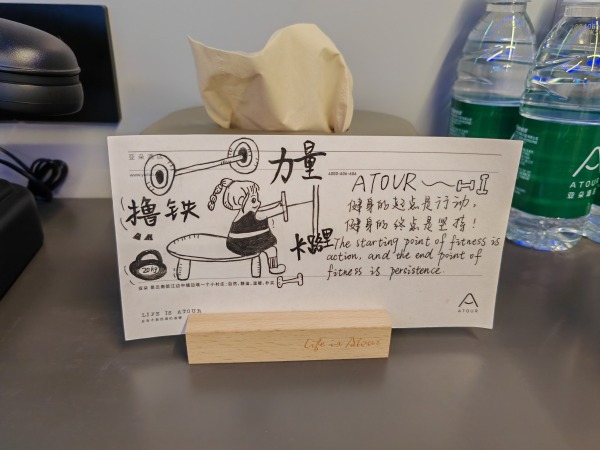 亚朵酒店
4008-404-404
力量
撸铁
卡路里
20kg
ATOUR
健身的起点是行动,
健身的终点是坚持!
The starting point of fitness is
action, and the end point of
fitness is persistence.
LIFE IS ATOUR
ATOUR
Life is Atour
ATOUR
亚朵酒店